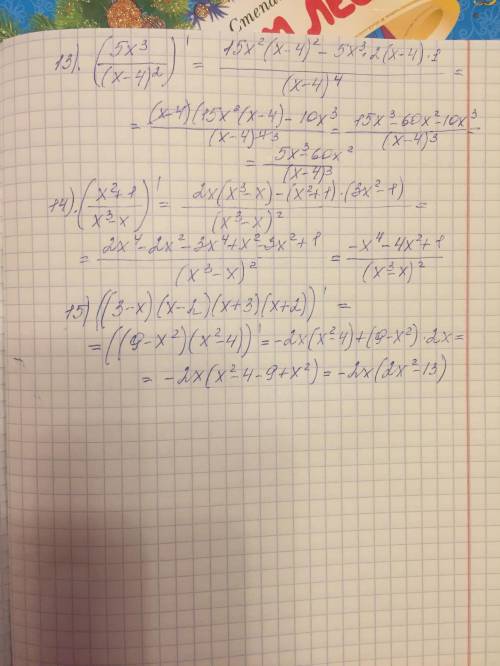 Степа
ЛЕС
13). (5x³/(x-4)²)' = (15x²(x-4)² - 5x³·2(x-4)·1)/(x-4)⁴ =
= ((x-4)(15x²(x-4) - 10x³)/(x-4)⁴ ³ = (15x³-60x²-10x³)/(x-4)³
= (5x³-60x²)/(x-4)³
14). (x²+1/x³-x)' = (2x(x³-x) - (x²+1)·(3x²-1))/(x³-x)² =
= (2x⁴-2x²-3x⁴+x²-3x²+1)/(x³-x)² = (-x⁴-4x²+1)/(x³-x)²
15) ((3-x)(x-2)(x+3)(x+2))' =
= ((9-x²)(x²-4))' = -2x(x²-4)+(9-x²)·2x =
= -2x(x²-4-9+x²) = -2x(2x²-13)